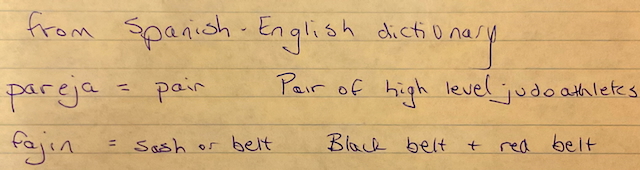 from Spanish-English dictionary
pareja = pair Pair of high level judo athletes
fajin = sash or belt Black belt + red belt